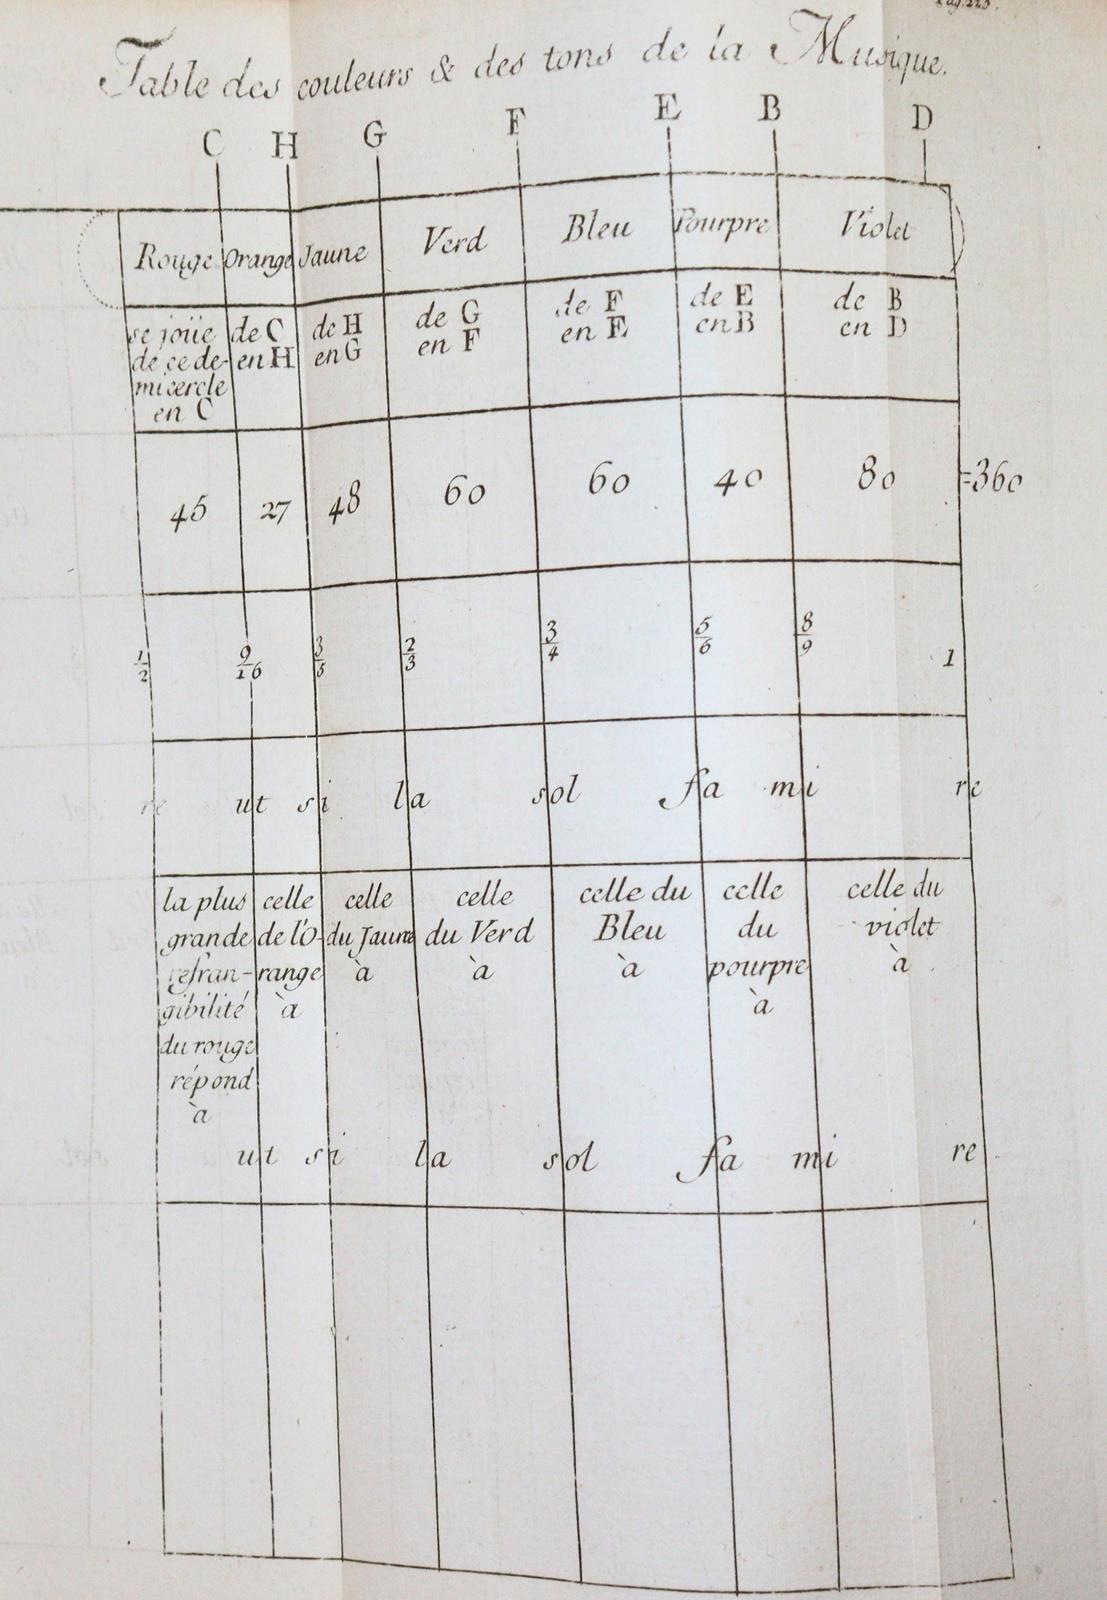 Pag. 223.
Table des couleurs & des tons de la Musique.
C H G F E B D
Rouge Orange Jaune Verd Bleu Pourpre Violet
se joüe de C de H de G de F de E de B
de ce de- en H en G en F en E en B en D
micercle
en C
45 27 48 60 60 40 80 =360
1/2 9/16 3/5 2/3 3/4 5/6 8/9 1
re ut si la sol fa mi re
la plus celle celle celle celle du celle celle du
grande de l'O- du Jaune du Verd Bleu du violet
refran- range à à à pourpre à
gibilité à à
du rouge
répond
à
ut si la sol fa mi re